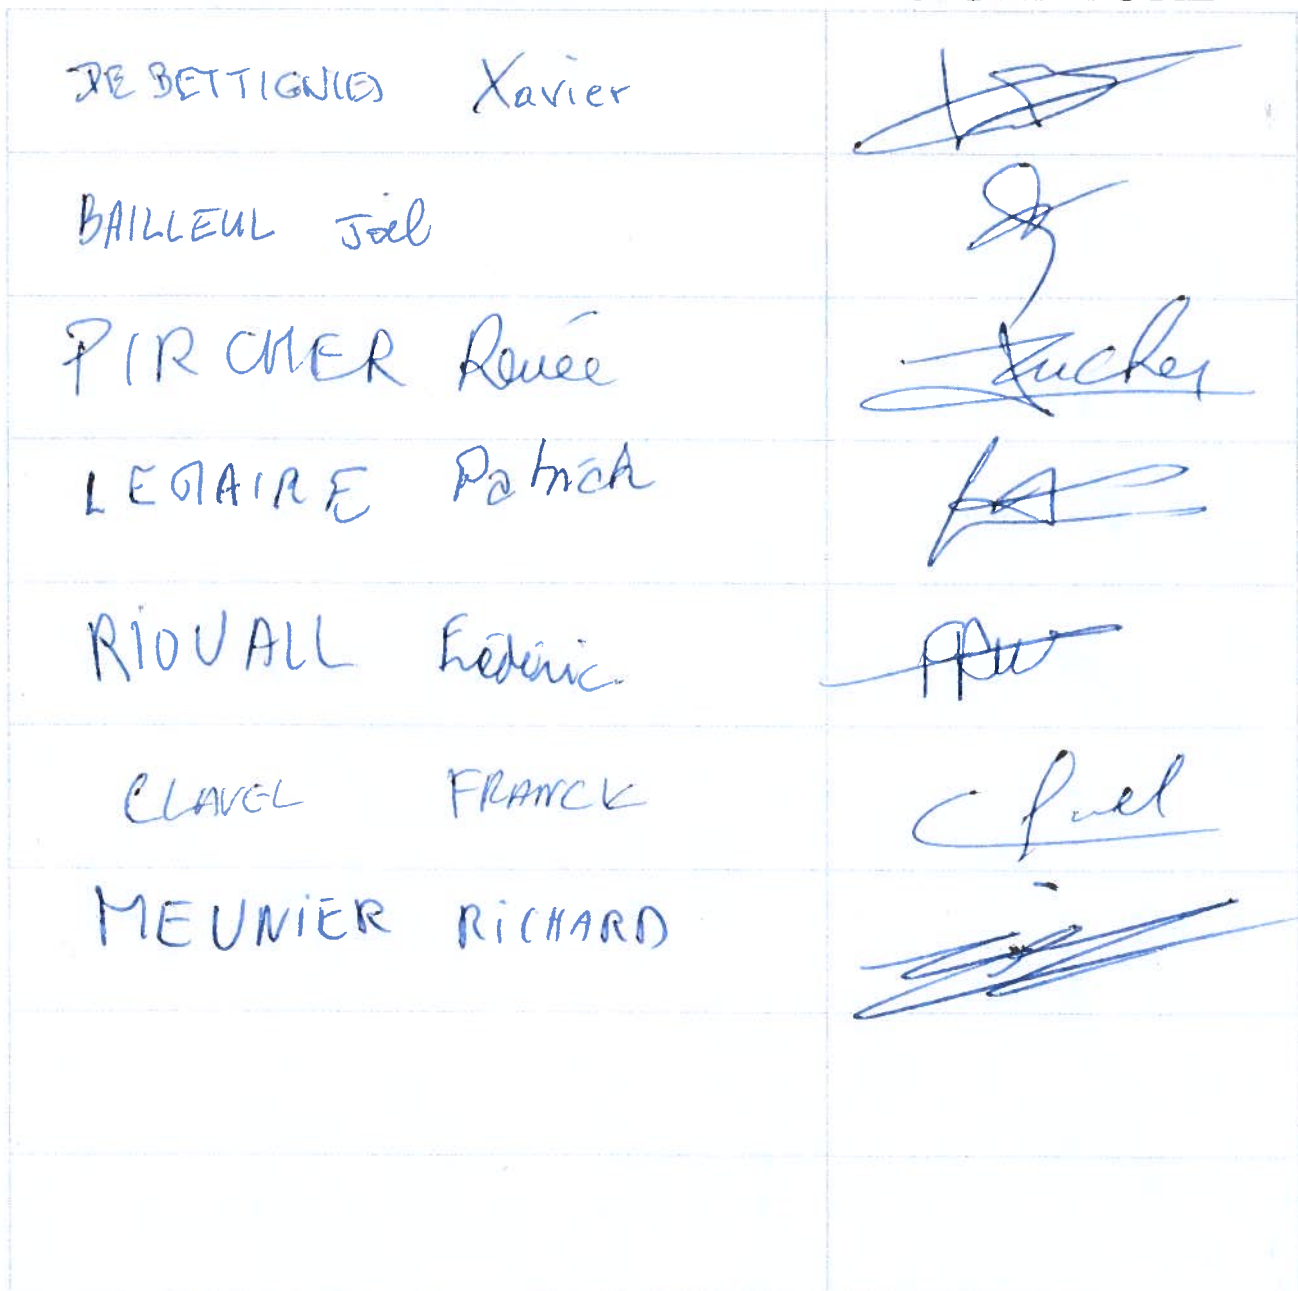 DE BETTIGNIES Xavier
BAILLEUL Joël
PIRCHER Renée
LEMAIRE Patrick
RIOUALL Frédéric
CLAVEL FRANCK
MEUNIER RICHARD